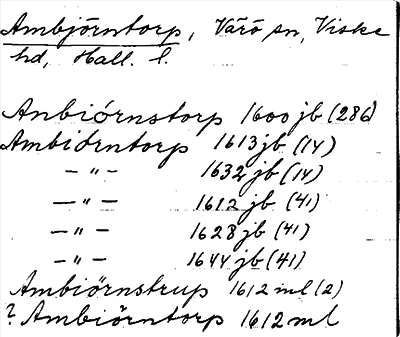 Ambjörntorp, Värö sn, Viske
hd, Hall. l.
Anbiórnstorp 1600 jb (286)
Ambiórntorp 1613 jb (14)
— " — 1632 jb (14)
— " — 1612 jb (41)
— " — 1628 jb (41)
— " — 1644 jb (41)
Ambiörnstrup 1612 ml (2)
? Ambiörntorp 1612 ml